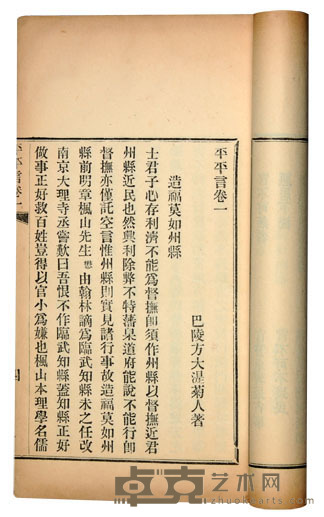 平平言卷一
巴陵方大湜菊人著
造福莫如州縣
士君子心存利濟不能為督撫卽須作州縣以督撫近君
州縣近民也然興利除弊不特藩臬道府能說不能行卽
督撫亦僅託空言惟州縣則實見諸行事故造福莫如州
縣前明章楓山先生懋由翰林謫為臨武知縣未之任改
南京大理寺丞嘗歎曰吾恨不作臨武知縣蓋知縣正好
做事正好救百姓豈得以官小為嫌也楓山本理學名儒
平平言卷一
卓克艺术网
zhuokearts.com